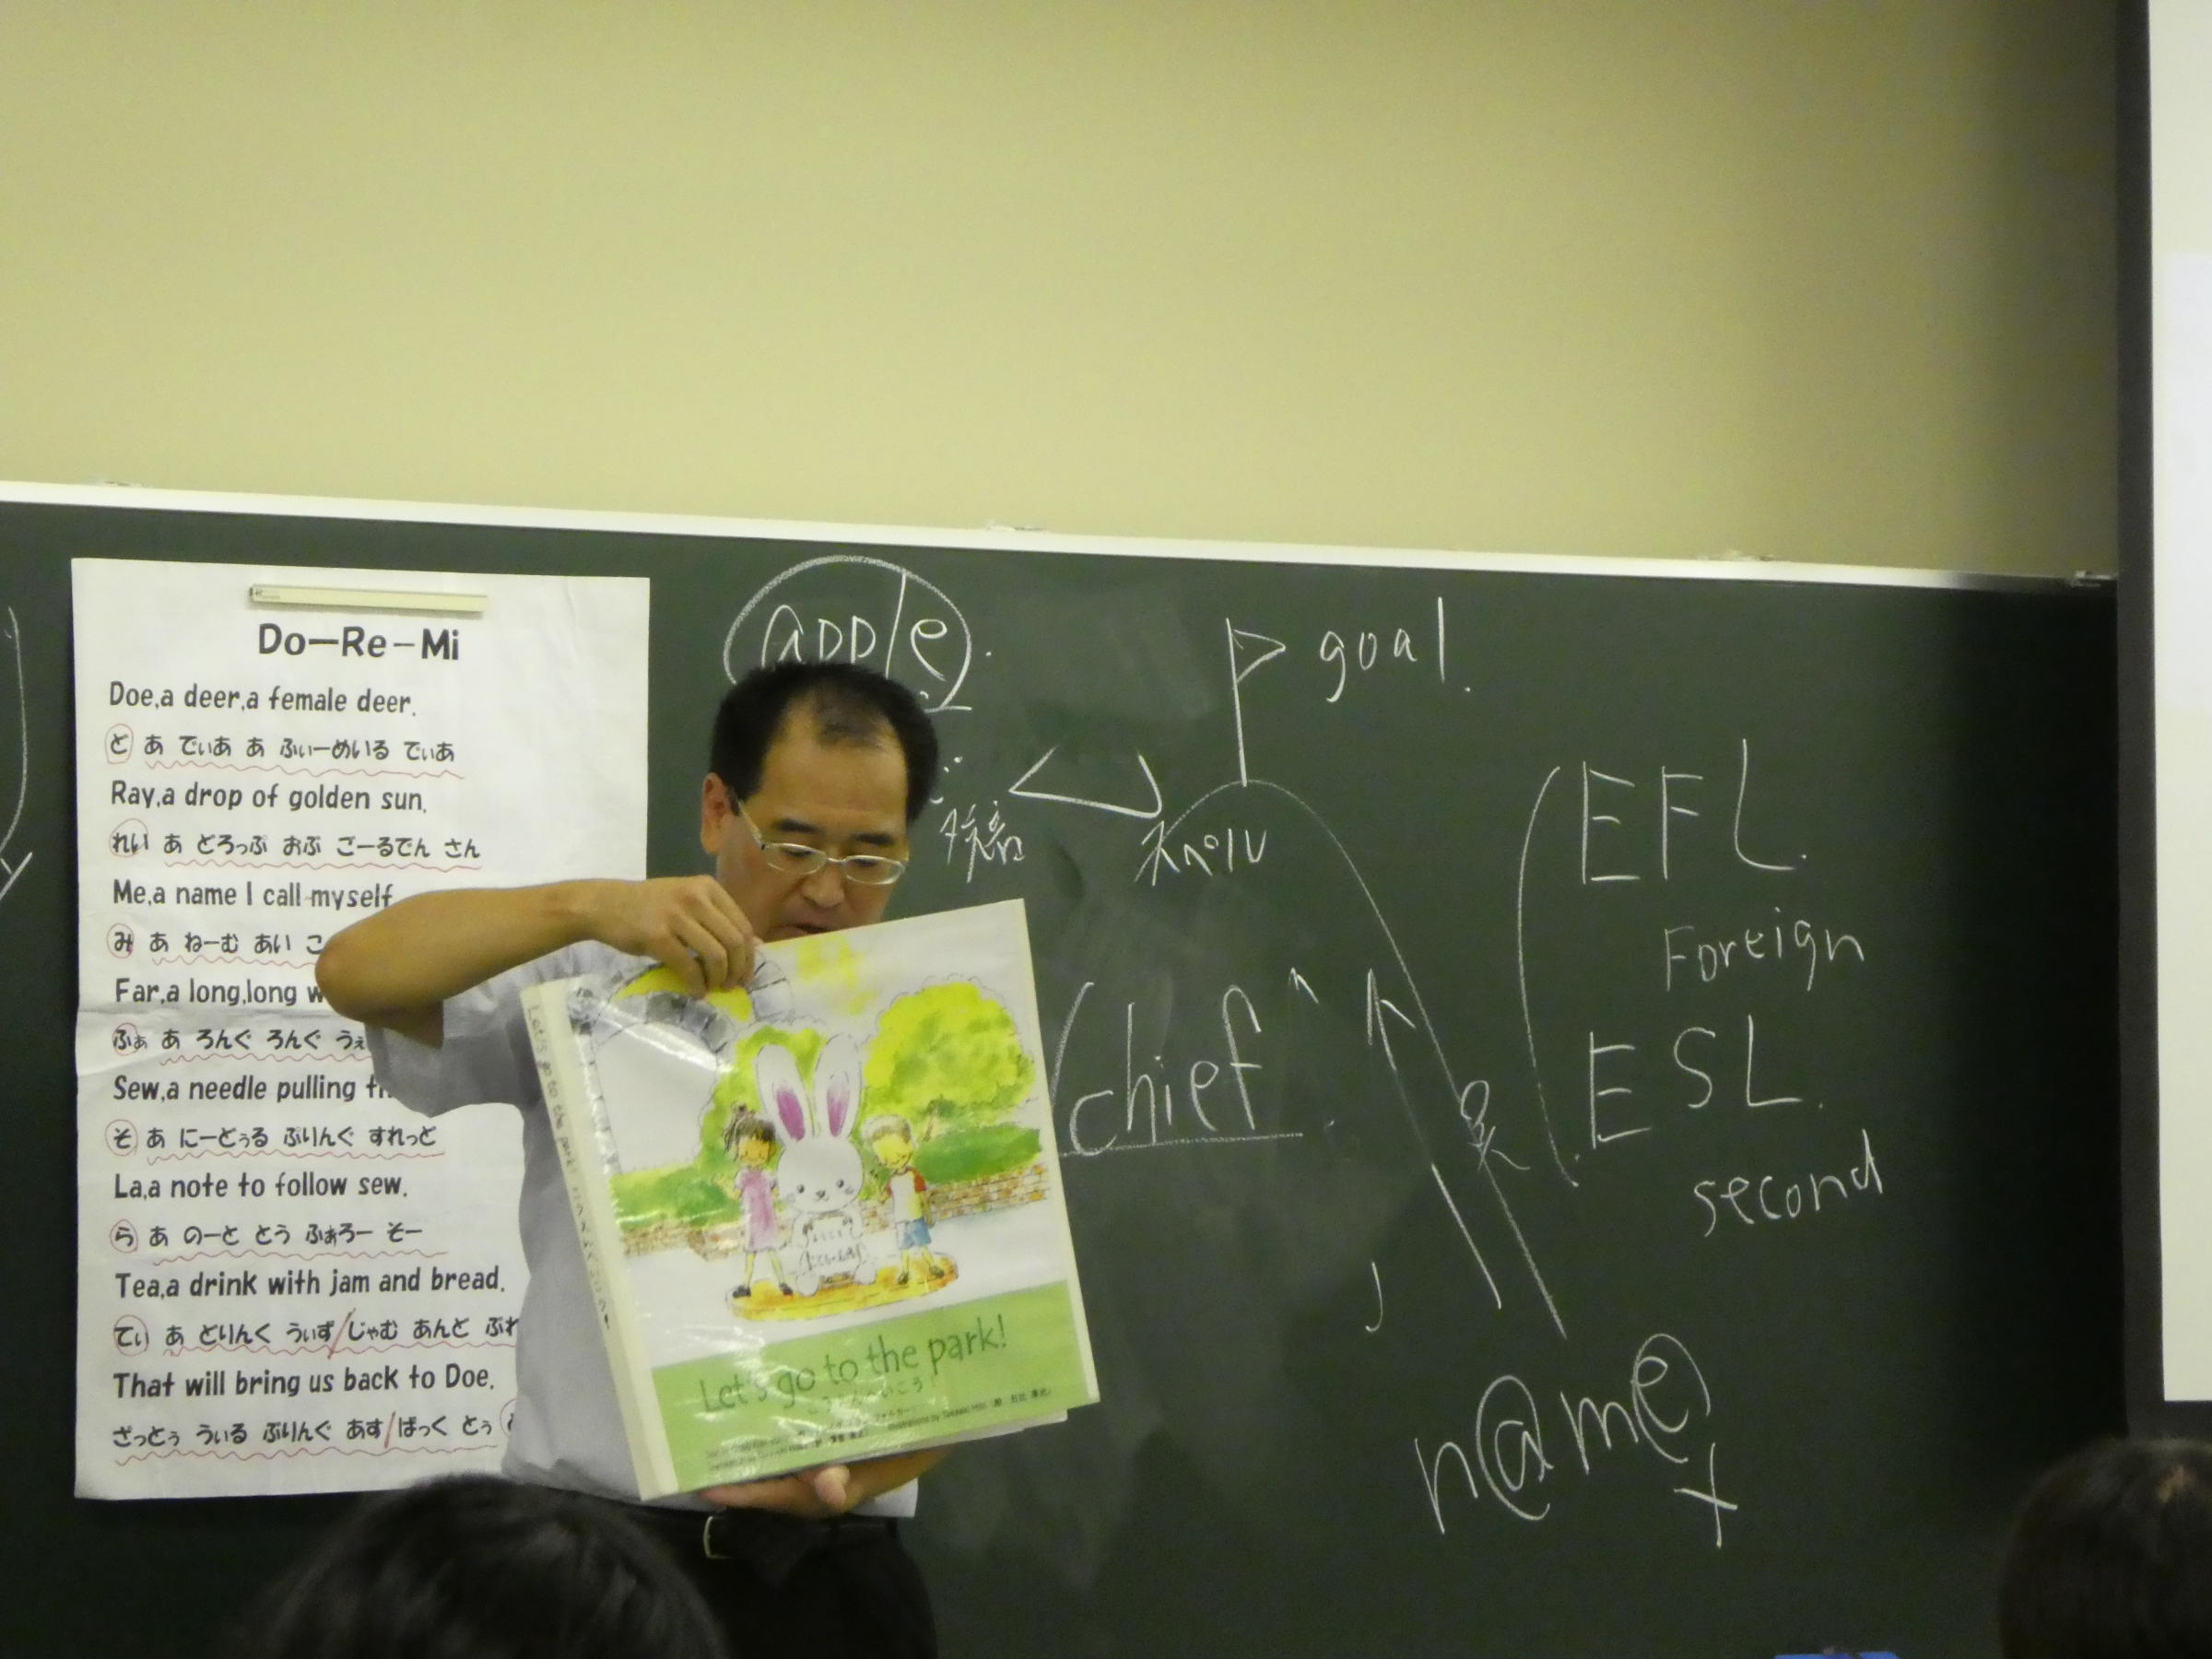 Do-Re-Mi
Doe,a deer,a female deer.
ど あ でぃあ あ ふぃーめいる でぃあ
Ray,a drop of golden sun.
れい あ どろっぷ おぶ ごーるでん さん
Me,a name I call myself
み あ ねーむ あい こ
Far,a long,long w
ふぁ あ ろんぐ ろんぐ うぇ
Sew,a needle pulling
そ あ にーどぅる ぷりんぐ すれっど
La,a note to follow sew.
ら あ のーと とぅ ふぁろー そー
Tea,a drink with jam and bread.
てぃ あ どりんく うぃず/じゃむ あんど ぶれ
That will bring us back to Doe.
ざっとぅ うぃる ぶりんぐ あす/ばっく とぅ
apple.
スペル
goal.
chief
EFL.
Foreign
ESL.
second
name
Let's go to the park!
こうえんへいこう!
Let's go to the park!